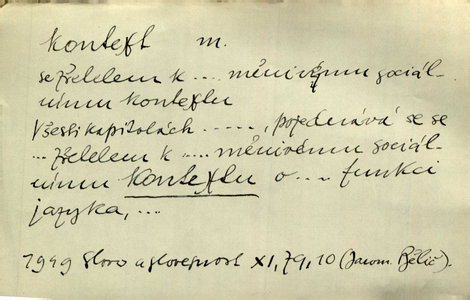 kontext m.
se zřetelem k .... měnivému sociál-
nímu kontextu
V šesti kapitolách ....., pojednává se se
... zřetelem k .... měnivému sociál-
nímu kontextu o .... funkci
jazyka, ...
1949 Slovo a slovesnost XI, 79, 10 (Jarom. Bělič).